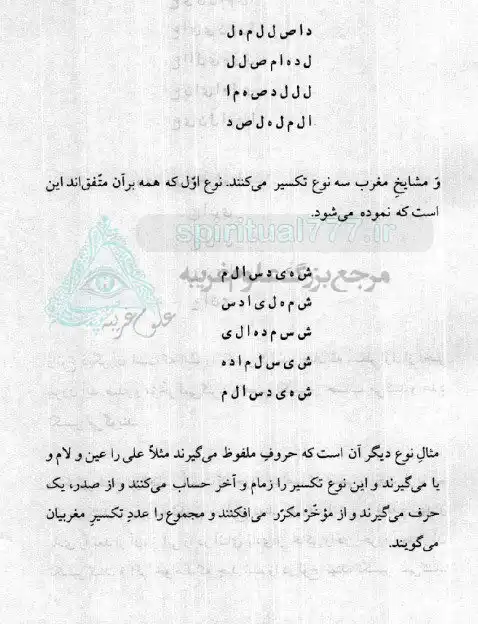 د ا ص ل ل م ه ل
ل د ه ا م ص ل ل
ل ل ل د ص ه م ا
ا ل م ل ه ل ص د
وَ مشایخِ مغرب سه نوع تکسیر می‌کنند. نوع اوّل که همه برآن متّفق‌اند این
است که نموده می‌شود.
spiritual777.ir
مرجع بزرگ علوم غریبه
علوم غریبه
ش ه ی د س ا ل م
ش م ه ل ی ا د س
ش س م د ه ا ل ی
ش ی س ل م ا د ه
ش ه ی د س ا ل م
مثالِ نوع دیگر آن است که حروفِ ملفوظ می‌گیرند مثلاً علی را عین و لام و
یا می‌گیرند و این نوع تکسیر را زمام و آخر حساب می‌کنند و از صدر، یک
حرف می‌گیرند و از مؤخّرْ مکرّر می‌افکنند و مجموع را عددِ تکسیرِ مغربیان
می‌گویند.